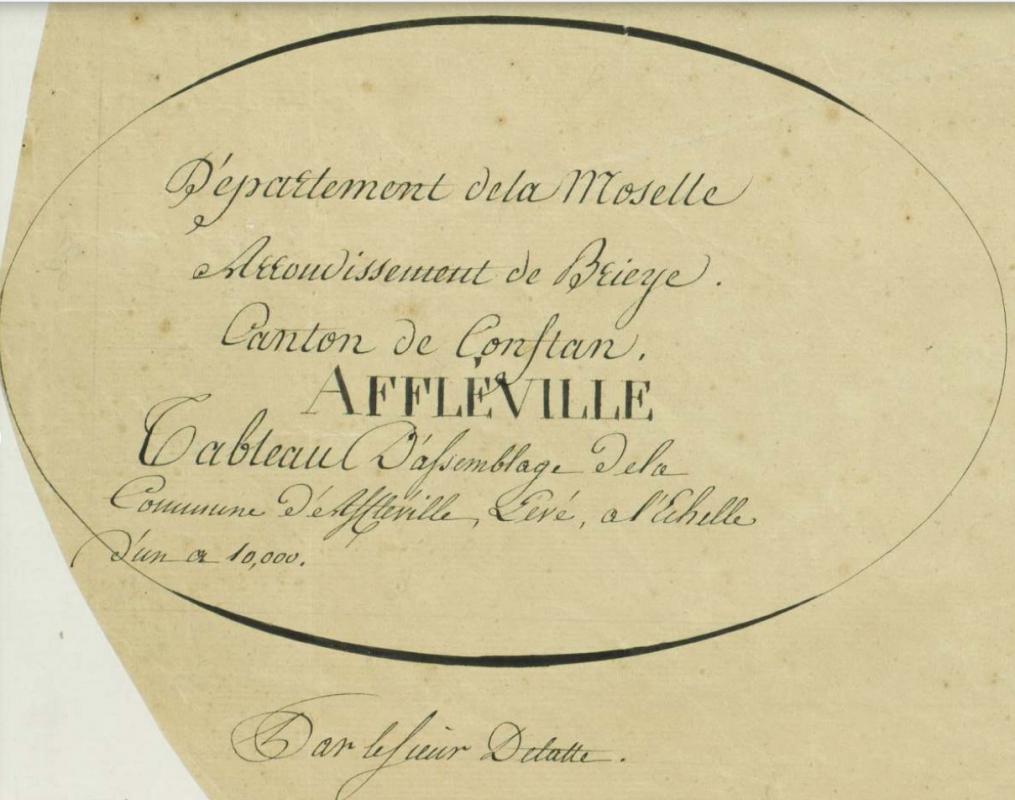 Département dela Moselle
Arrondissement de Brieye.
Canton de Conflan.
AFFLÉVILLE
Tableau D'assemblage dela
Commune d'éAffléville, Levé, a l'Echelle
d'un a 10,000.
Par le Sieur Delatte.